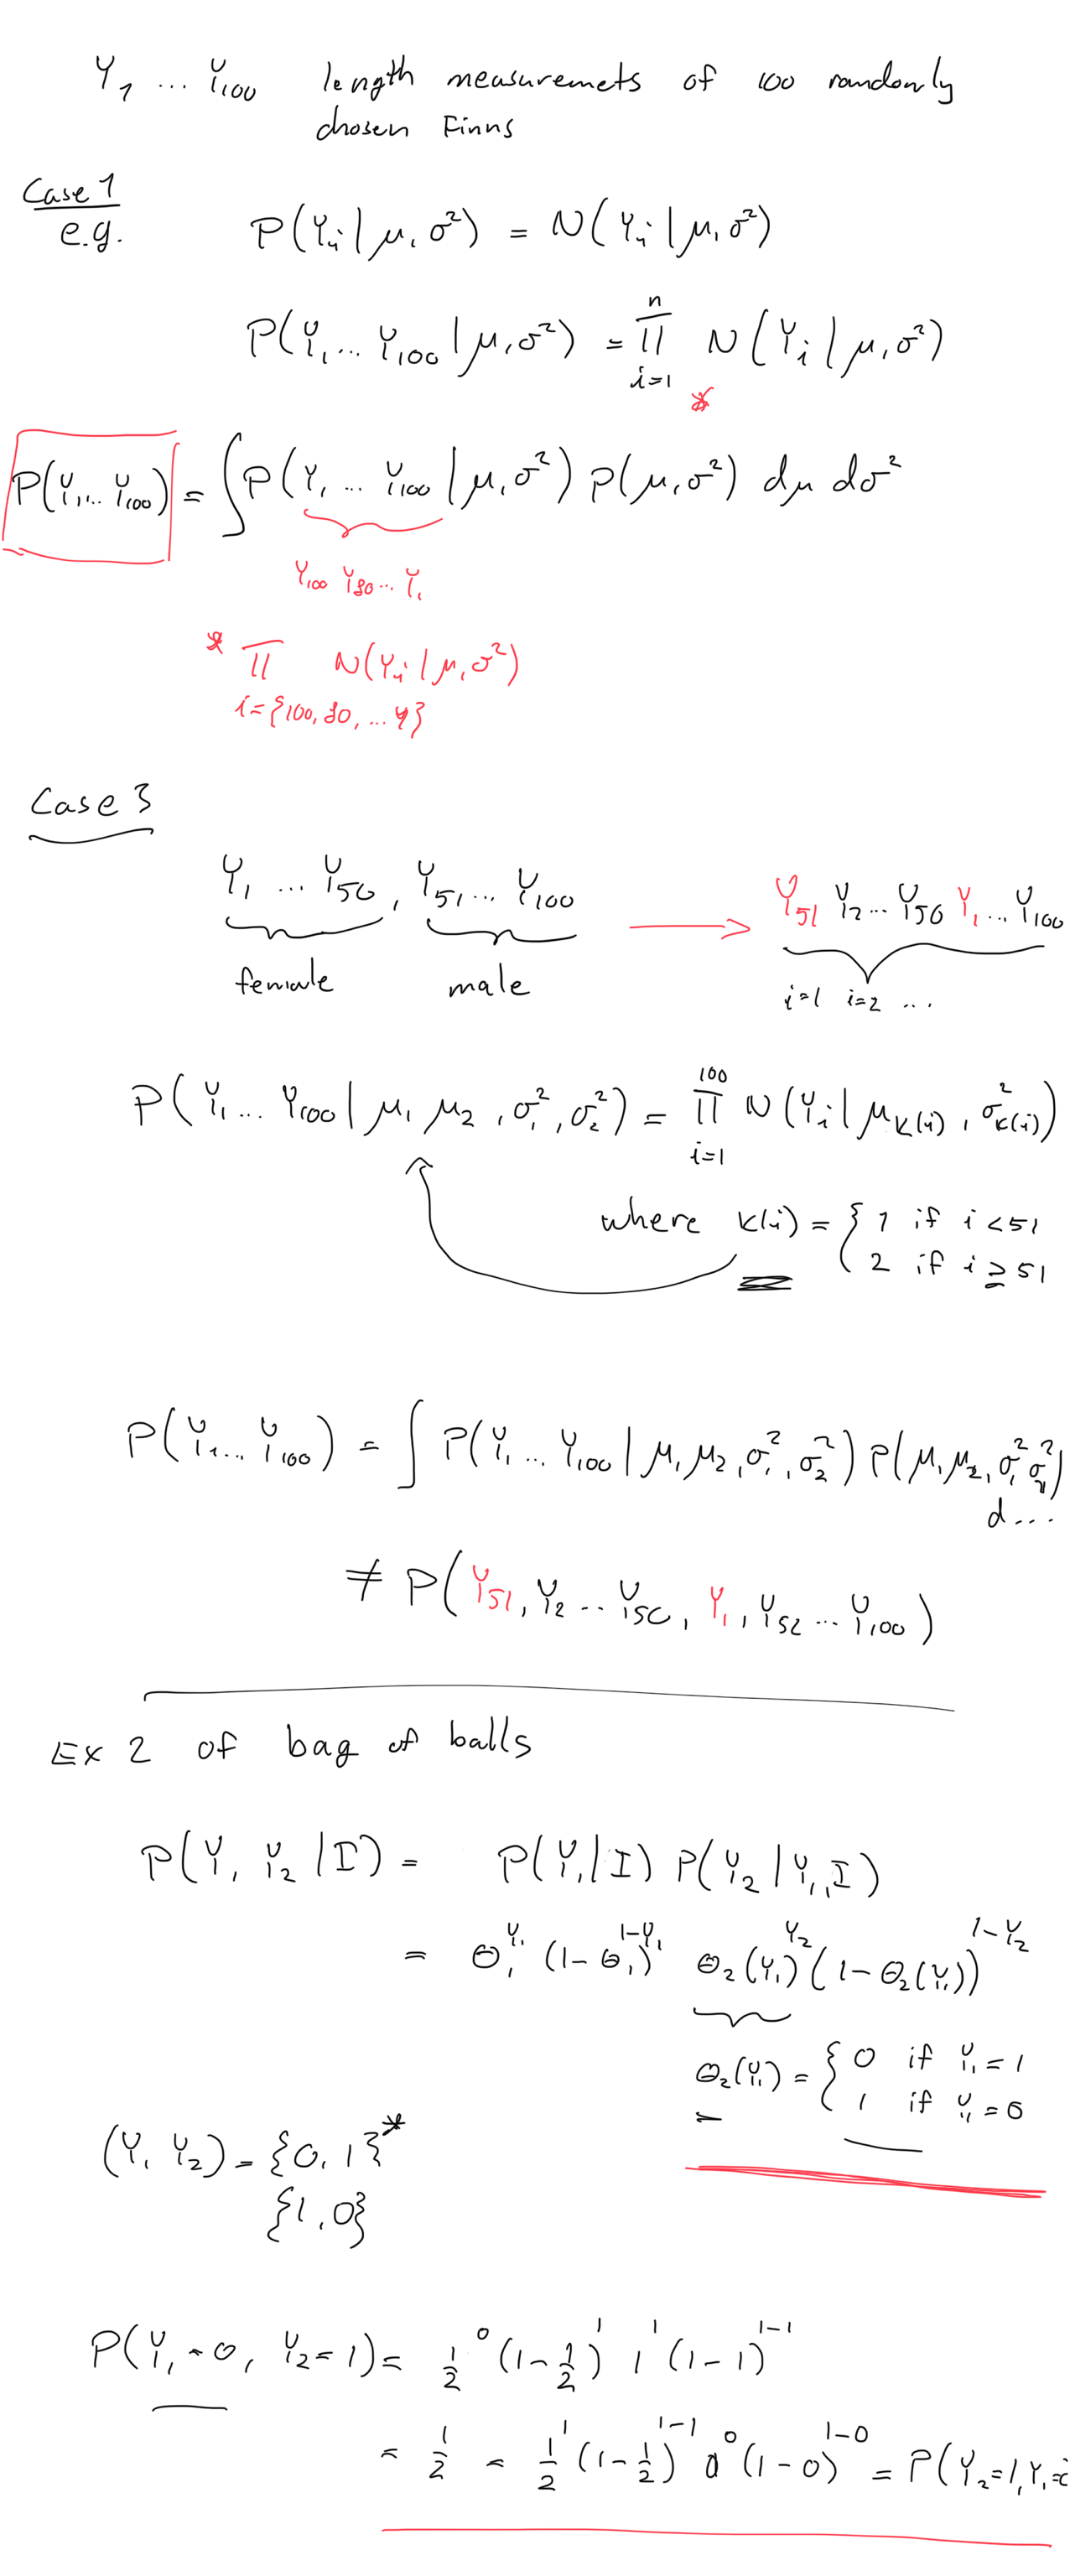 Y₁ ... Y₁₀₀ length measuremets of 100 randomly
chosen Finns
Case 1
e.g. P(Yᵢ | μ, σ²) = N(Yᵢ | μ, σ²)
P(Y₁ ... Y₁₀₀ | μ, σ²) = ∏ᵢ₌₁ⁿ N(Yᵢ | μ, σ²)
*
P(Y₁, ... Y₁₀₀) = ∫ P(Y₁ ... Y₁₀₀ | μ, σ²) p(μ, σ²) dμ dσ²
Y₁₀₀ Y₈₀ ... Y₁
* ∏ N(Yᵢ | μ, σ²)
i={100, 80, ... 4}
Case 3
Y₁ ... Y₅₀, Y₅₁ ... Y₁₀₀ → Y₅₁ Y₂ ... Y₅₀ Y₁ ... Y₁₀₀
female male i=1 i=2 ...
P(Y₁ ... Y₁₀₀ | μ₁ μ₂, σ₁², σ₂²) = ∏ᵢ₌₁¹⁰⁰ N(Yᵢ | μ_k(i), σ²_k(i))
where k(i) = { 1 if i < 51
2 if i ≥ 51
P(Y₁ ... Y₁₀₀) = ∫ P(Y₁ ... Y₁₀₀ | μ₁ μ₂, σ₁², σ₂²) P(μ₁ μ₂, σ₁² σ₂²)
d...
≠ P(Y₅₁, Y₂ ... Y₅₀, Y₁, Y₅₂ ... Y₁₀₀)
Ex 2 of bag of balls
P(Y₁ Y₂ | I) = P(Y₁ | I) P(Y₂ | Y₁, I)
= θ₁^Y₁ (1-θ₁)^1-Y₁ θ₂(Y₁)^Y₂ (1-θ₂(Y₁))^1-Y₂
θ₂(Y₁) = { 0 if Y₁ = 1
1 if Y₁ = 0
(Y₁ Y₂) = {0, 1}*
{1, 0}
P(Y₁ = 0, Y₂ = 1) = ½⁰ (1-½)¹ 1¹ (1-1)^1-1
= ½ = ½¹ (1-½)^1-1 0⁰ (1-0)^1-0 = P(Y₂=1, Y₁=